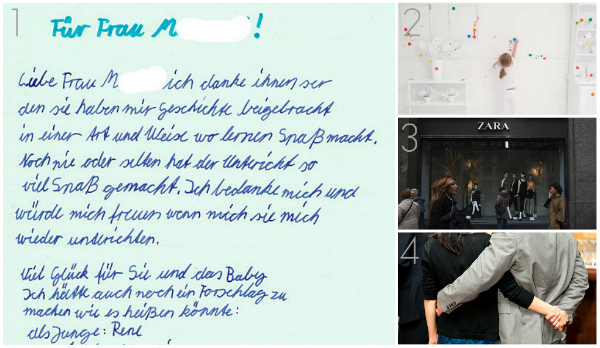 1
Für Frau M !
Liebe Frau M ich danke ihnen ser
den sie haben mir Geschichte beigebracht
in einer Art und Weise wo lernen Spaß macht.
Noch nie oder selten hat der Unterricht so
viel Spaß gemacht. Ich bedanke mich und
würde mich freuen wenn mich sie mich
wieder unterichten.
Viel Glück für Sie und das Baby
Ich hätte auch noch ein Forschlag zu
machen wie es heißen könnte:
als Junge: Rene
2
3
ZARA
4